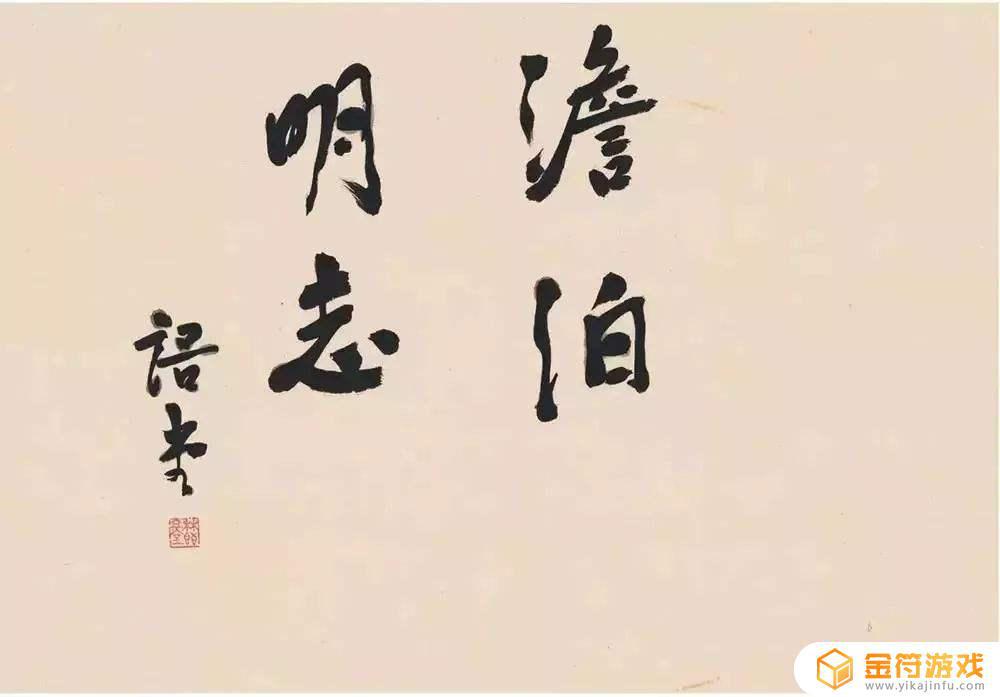 澹泊
明志
語堂
金符游戏
www.yikajinfu.com